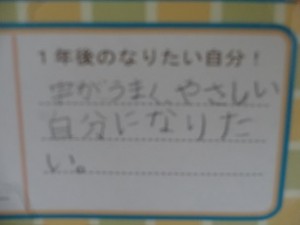 1年後のなりたい自分!
字がうまく、やさしい
自分になりた
い。